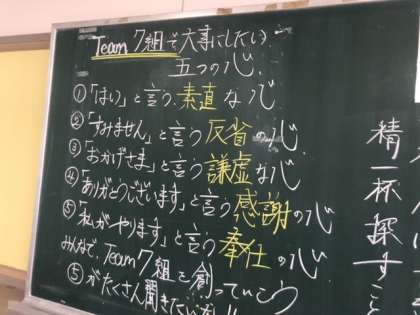 Team 7組で大事にしたい
五つの心
①「はい」と言う素直な心
②「すみません」と言う反省の心
③「おかげさま」と言う謙虚な心
④「ありがとうございます」と言う感謝の心
⑤「私がやります」と言う奉仕の心
みんなで、Team 7組を創っていこう
⑤がたくさん聞きたいな!!
精一杯探すこと